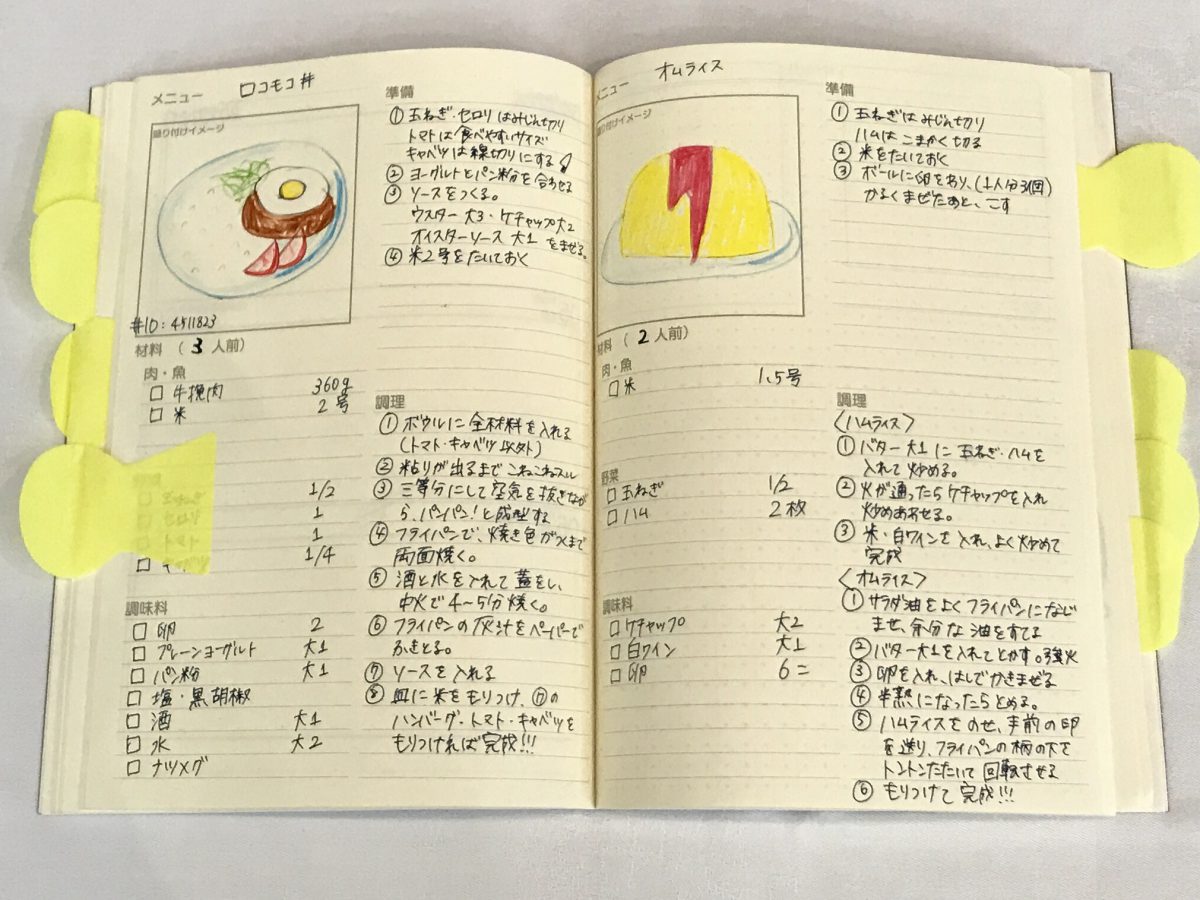 メニュー ロコモコ丼
盛り付けイメージ
#ID:4511823
材料 (3人前)
肉・魚
□ 牛挽肉 360g
□ 米 2号
1/2
1
1
1/4
調味料
□ 卵 2
□ プレーンヨーグルト 大1
□ パン粉 大1
□ 塩・黒胡椒
□ 酒 大1
□ 水 大2
□ ナツメグ
準備
① 玉ねぎ・セロリはみじん切り
トマトは食べやすいサイズ
キャベツは線切りにする
② ヨーグルトとパン粉を合わせる
③ ソースをつくる。
ウスター大3・ケチャップ大2
オイスターソース 大1 をまぜる。
④ 米2号をたいておく
調理
① ボウルに全材料を入れる
(トマト・キャベツ以外)
② 粘りが出るまでこねこねスル
③ 三等分にして空気を抜きなが
ら、パンパン!と成型する
④ フライパンで、焼き色がつくまで
両面焼く。
⑤ 酒と水を入れて蓋をし、
中火で4〜5分焼く。
⑥ フライパンの灰汁をペーパーで
ふきとる。
⑦ ソースを入れる
⑧ 皿に米をもりつけ、⑦の
ハンバーグ・トマト・キャベツを
もりつければ完成!!!
メニュー オムライス
盛り付けイメージ
材料 (2人前)
肉・魚
□ 米 1.5号
野菜
□ 玉ねぎ 1/2
□ ハム 2枚
調味料
□ ケチャップ 大2
□ 白ワイン 大1
□ 卵 6コ
準備
① 玉ねぎはみじん切り
ハムはこまかく切る
② 米をたいておく
③ ボールに卵をわり、(1人分3個)
かるくまぜたあと、こす
調理
〈ハムライス〉
① バター大1に玉ねぎ・ハムを
入れて炒める。
② 火が通ったらケチャップを入れ
炒めあわせる。
③ 米・白ワインを入れ、よく炒めて
完成
〈オムライス〉
① サラダ油をよくフライパンになじ
ませ、余分な油をすてる
② バター大1を入れてとかす。強火
③ 卵を入れ、はしでかきまぜる
④ 半熟になったらとめる。
⑤ ハムライスをのせ、手前の卵
を送り、フライパンの柄の下を
トントンたたいて回転させる
⑥ もりつけて完成!!!